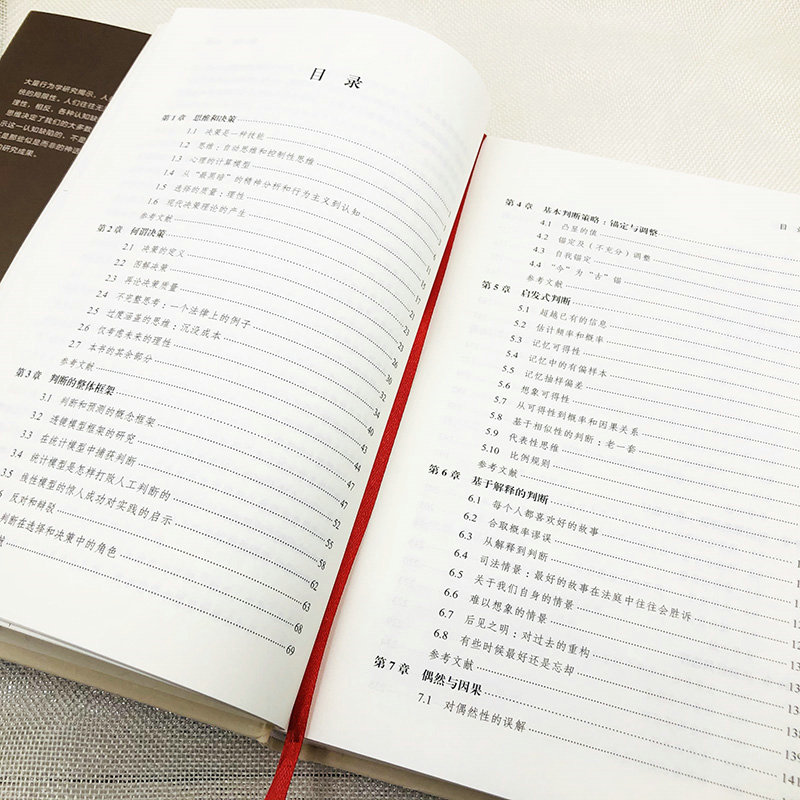 大量行为学研究揭示，人
统的局限性。人们往往无
理性，相反，各种认知缺
思维决定了我们的大多数
示这一认知缺陷的，不是
是那些似是而非的神话
的研究成果。
目 录
第1章 思维和决策
1.1 决策是一种技能
1.2 思维：自动思维和控制性思维
1.3 心理的计算模型
1.4 从“最黑暗”的精神分析和行为主义到认知
1.5 选择的质量：理性
1.6 现代决策理论的产生
参考文献
第2章 何谓决策
2.1 决策的定义
2.2 图解决策
2.3 再论决策质量
2.4 不完整思考：一个法律上的例子
2.5 过度涵盖的思维：沉没成本
2.6 仅考虑未来的理性
2.7 本书的其余部分
参考文献
第3章 判断的整体框架
3.1 判断和预测的概念框架
3.2 透镜模型框架的研究
3.3 在统计模型中捕获判断
3.4 统计模型是怎样打败人工判断的
3.5 线性模型的惊人成功对实践的启示
反对和辩驳
判断在选择和决策中的角色
目
第4章 基本判断策略：锚定与调整
4.1 凸显的值
4.2 锚定及（不充分）调整
4.3 自我锚定
4.4 “今”为“古”锚
参考文献
第5章 启发式判断
5.1 超越已有的信息
5.2 估计频率和概率
5.3 记忆可得性
5.4 记忆中的有偏样本
5.5 记忆抽样偏差
5.6 想象可得性
5.7 从可得性到概率和因果关系
5.8 基于相似性的判断：老一套
5.9 代表性思维
5.10 比例规则
参考文献
第6章 基于解释的判断
6.1 每个人都喜欢好的故事
6.2 合取概率谬误
6.3 从解释到判断
6.4 司法情景：最好的故事在法庭中往往会胜诉
6.5 关于我们自身的情景
6.6 难以想象的情景
6.7 后见之明：对过去的重构
6.8 有些时候最好还是忘却
参考文献
第7章 偶然与因果
7.1 对偶然性的误解
138
139
141